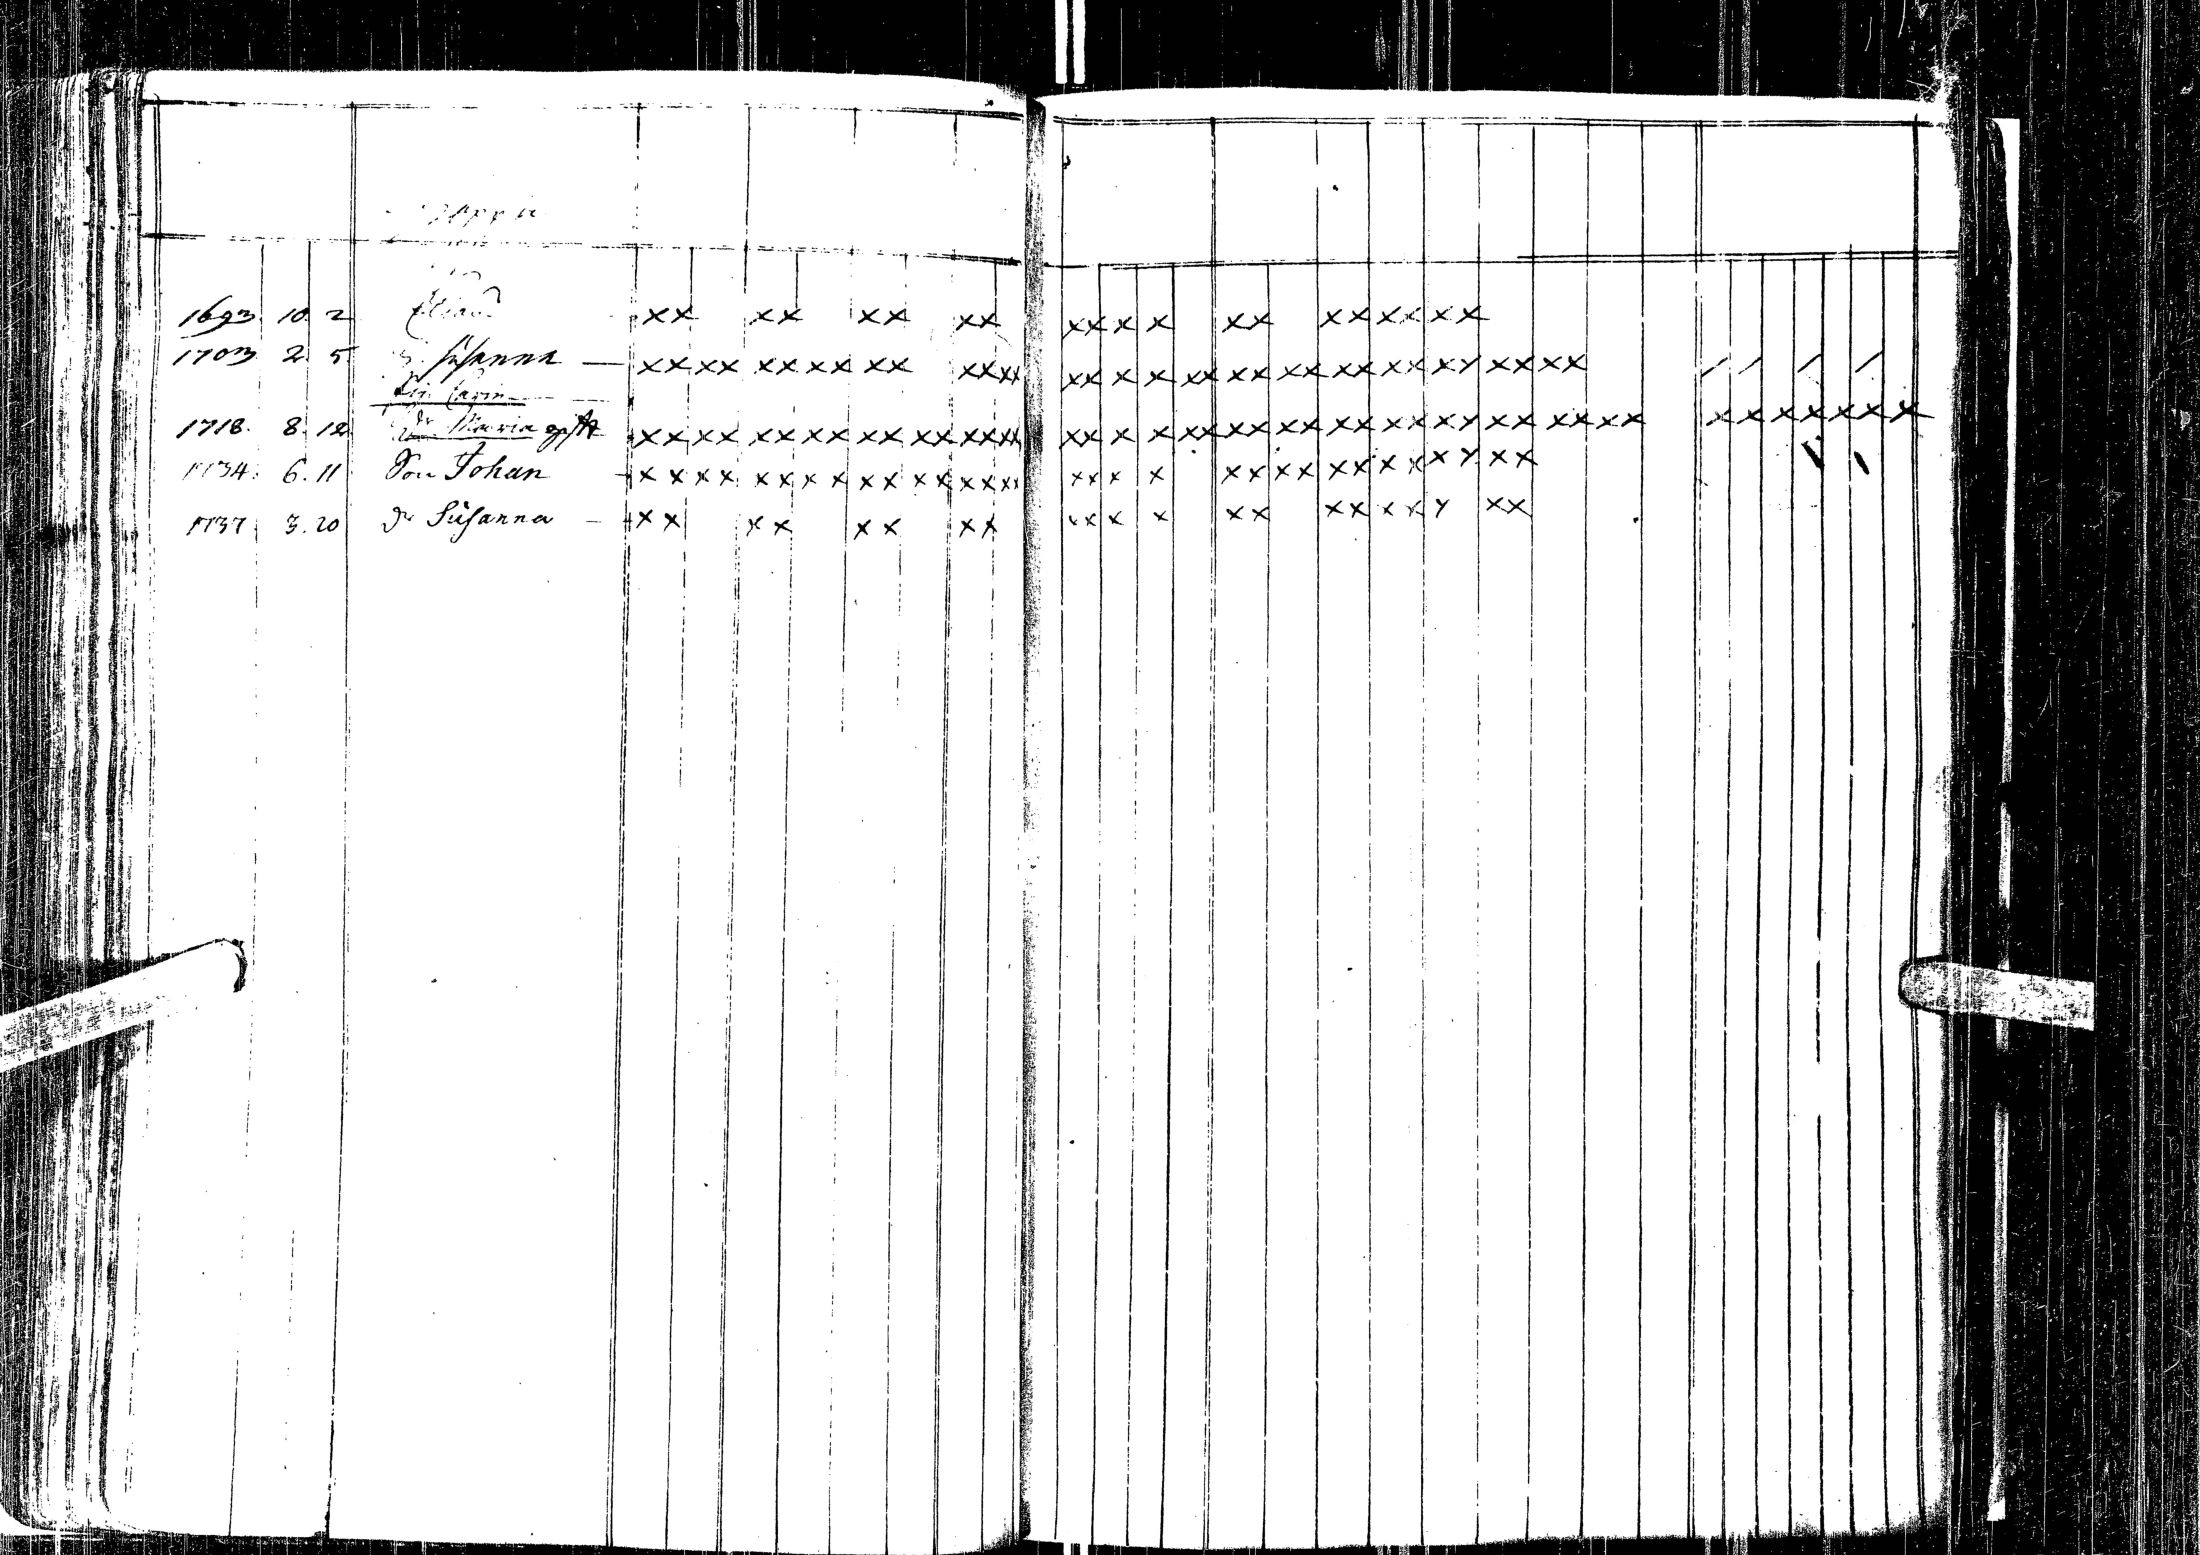 1693. 10. 2 Elias xx xx xx xx xx x x xx xx xx xx
1703 2. 5 Susanna — xx xx xx xx xx xxxx xx x x xx xx xx xx xx xy xx xx / / / /
Carin
1718. 8. 12 dr Maria xx xx xx xx xx xx xxxx xx x x xx xx xx xx xx xy xx xx xx x x x x x x x
1734. 6. 11 Son Johan x x x x x x x x x x x x x x x x x x x x x x x x x x x x x y x x
1737. 3. 20 dr Susanna — x x x x x x x x x x x x x x x x x x y x x